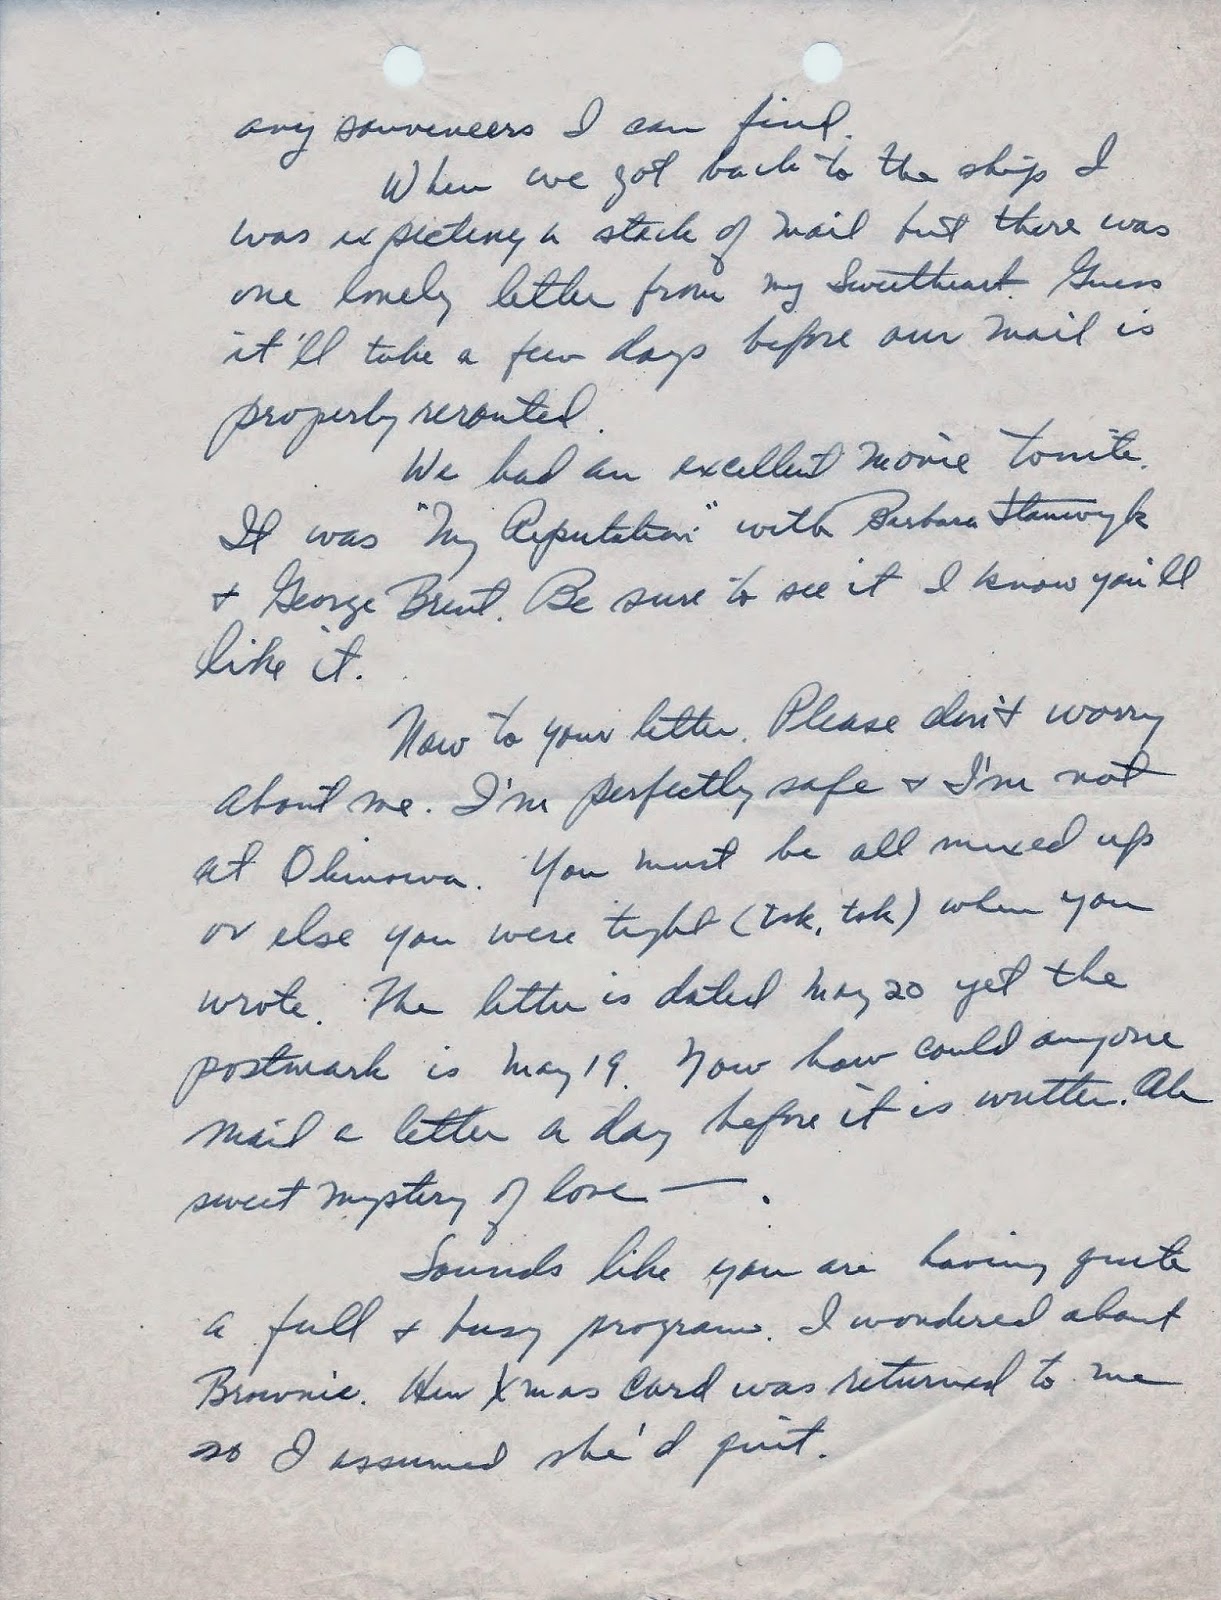 any souveneers I can find.
When we got back to the ship I
was expecting a stack of mail but there was
one lonely letter from my Sweetheart. Guess
it'll take a few days before our mail is
properly rerouted.
We had an excellent movie tonite.
It was "My Reputation" with Barbara Stanwyk
& George Brent. Be sure to see it I know you'll
like it.
Now to your letter. Please don't worry
about me. I'm perfectly safe & I'm not
at Okinowa. You must be all mixed up
or else you were tight (tsk, tsk) when you
wrote. The letter is dated May 20 yet the
postmark is May 19. Now how could anyone
mail a letter a day before it is written. Ah
sweet mystery of love — .
Sounds like you are having quite
a full & busy program. I wondered about
Brownie. Her Xmas card was returned to me
so I assumed she'd quit.